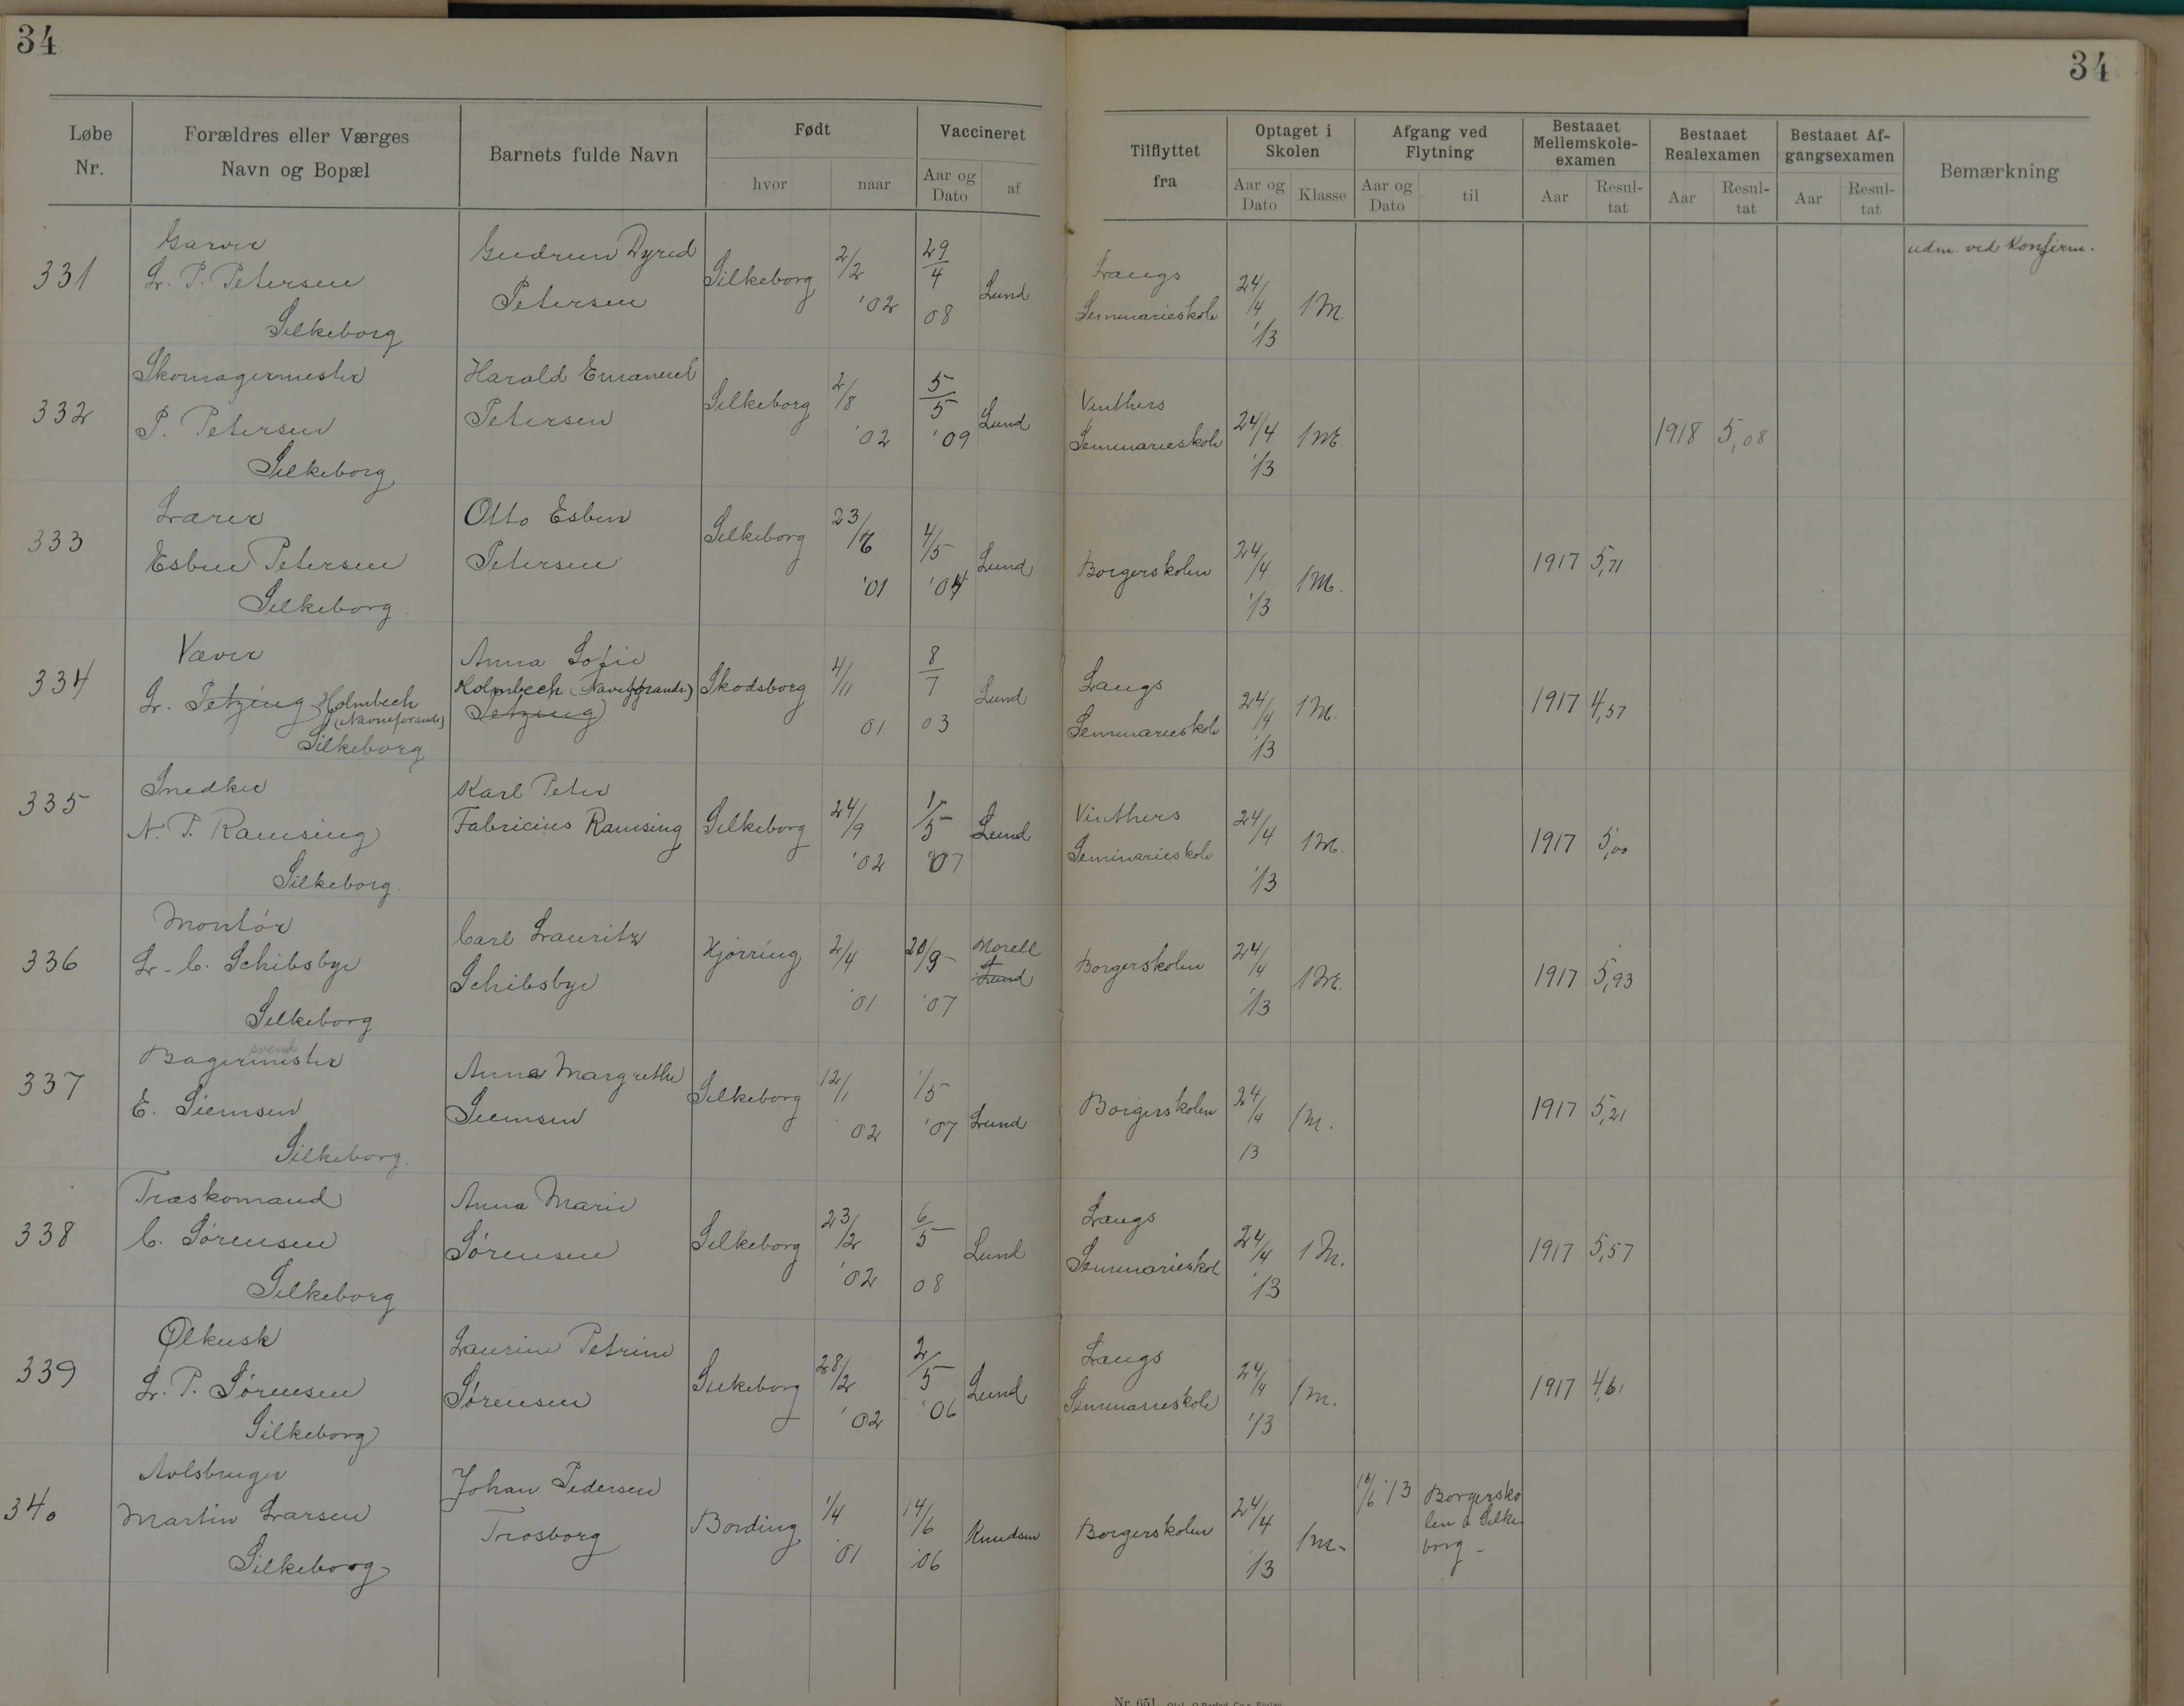 34
34
Løbe Nr.
Forældres eller Værges Navn og Bopæl
Barnets fulde Navn
Født
hvor
naar
Vaccineret
Aar og Dato
af
Tilflyttet fra
Optaget i Skolen
Aar og Dato
Klasse
Afgang ved Flytning
Aar og Dato
til
Bestaaet Mellemskole-examen
Aar
Resul-tat
Bestaaet Realexamen
Aar
Resul-tat
Bestaaet Af-gangsexamen
Aar
Resul-tat
Bemærkning
331
Garver
L. P. Petersen
Silkeborg
Gudrun Dyred
Petersen
Silkeborg
2/2 '02
29/4 08
Lund
Langs
Seminarieskole
24/4 '13
1 M.
udm. ved Konfirm.
332
Skomagermester
P. Petersen
Silkeborg
Harald Emanuel
Petersen
Silkeborg
2/8 '02
5/5 '09
Lund
Vinthers
Seminarieskole
24/4 '13
1 M.
1918 5,08
333
Lærer
Esben Petersen
Silkeborg
Otto Esben
Petersen
Silkeborg
'01
4/5 '04
Lund
Borgerskolen
24/4 '13
1 M.
1917 5,71
334
Væver
L. Petzing Holmbech
(Navneforandr)
Silkeborg
Anna Sofie
Holmbech (Navneforandr)
Petzing
Skodsborg
4/11 01
8/7 03
Lund
Langs
Seminarieskole
24/4 '13
1 M.
1917 4,57
335
Snedker
N. P. Ramsing
Silkeborg.
Karl Peter
Fabricius Ramsing
Silkeborg
24/9 '02
1/5 '07
Lund
Vinthers
Seminarieskole
24/4 '13
1 M.
1917 5,00
336
Montør
L. C. Schibsbye
Silkeborg
Carl Lauritz
Schibsbye
Hjørring
2/4 '01
20/9 '07
Morell
Lund
Borgerskolen
24/4 '13
1 M.
1917 5,93
337
svend
Bagermester
E. Siemsen
Silkeborg.
Anna Margrethe
Siemsen
Silkeborg
12/1 02
1/5 '07
Lund
Borgerskolen
24/4 13
1 M.
1917 5,21
338
Træskomand
C. Sørensen
Silkeborg
Anna Marie
Sørensen
Silkeborg
23/2 '02
6/5 08
Lund
Langs
Seminarieskol
24/4 '13
1 M.
1917 5,57
339
Ølkusk
L. P. Sørensen
Silkeborg
Laurine Petrine
Sørensen
Silkeborg
28/2 '02
2/5 '06
Lund
Langs
Seminarieskole
24/4 '13
1 M.
1917 4,61
340
Avlsbruger
Martin Larsen
Silkeborg
Johan Pedersen
Trosborg
Bording
1/4 '01
14/6 '06
Knudsen
Borgerskolen
24/4 '13
1 M.
'13
Borgersko
len i Silke
borg -
Nr. 651